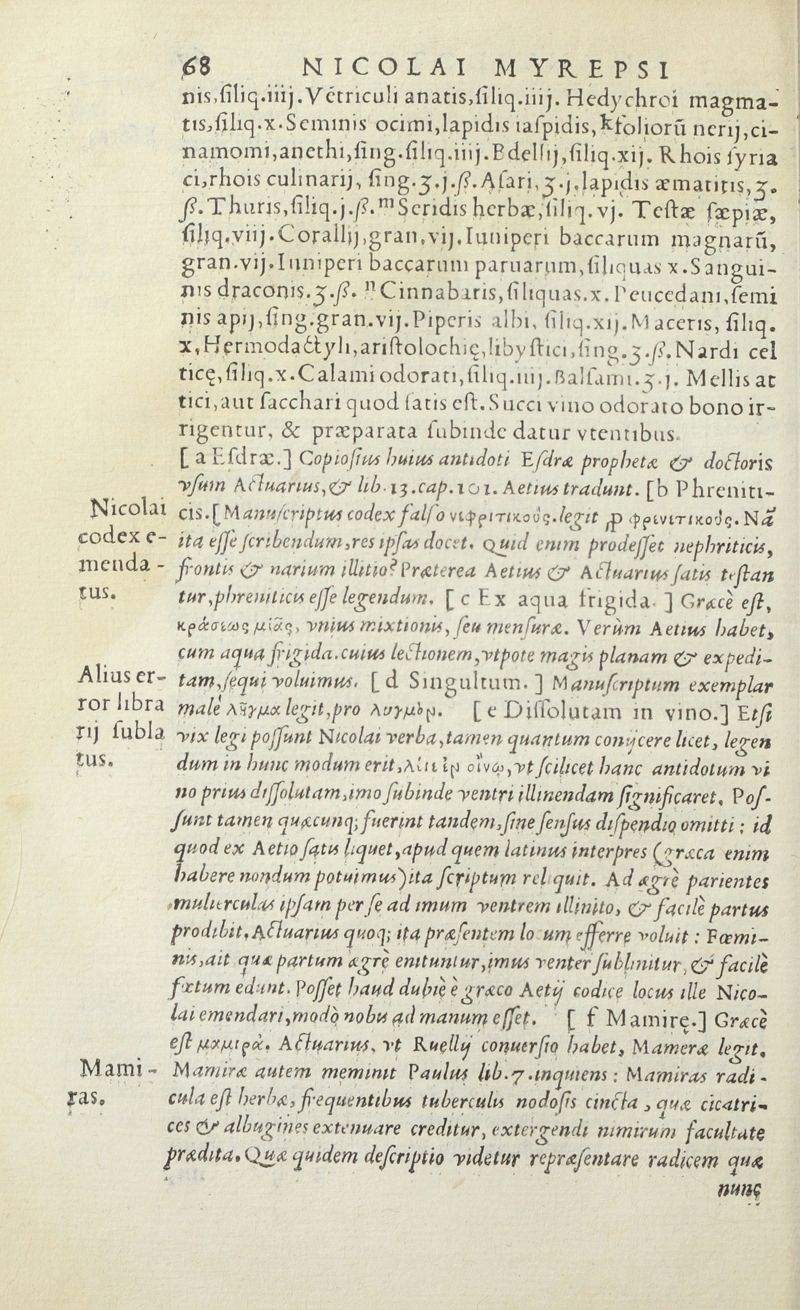 68 NICOLAI MYREPSI
nis,ſiliq.iiij.Vẽtriculi anatis,ſiliq.iiij. Hedychroi magma-
tis,ſiliq.x.Seminis ocimi,lapidis iaſpidis,kfoliorũ nerij,ci-
namomi,anethi,ſing.ſiliq.iiij.Bdellij,ſiliq.xij. Rhois ſyria
ci,rhois culinarij, ſing.ʒ.j.ß.Aſari,ʒ.j,lapidis æmatitis,ʒ.
ß.Thuris,ſiliq.j.ß.mSeridis herbæ,ſiliq.vj. Teſtæ ſæpiæ,
ſiliq.viij.Corallij,gran.vij.Iuniperi baccarum magnarũ,
gran.vij.Iuniperi baccarum paruarum,ſiliquas x.Sangui-
nis draconis.ʒ.ß. nCinnabaris,ſiliquas.x.Peucedani,ſemi
nis apij,ſing.gran.vij.Piperis albi, ſiliq.xij.Maceris, ſiliq.
x,Hermodactyli,ariſtolochię,libyſtici,ſing.ʒ.ß.Nardi cel
ticę,ſiliq.x.Calami odorati,ſiliq.iiij.Balſami.ʒ.j. Mellis at
tici,aut ſacchari quod ſatis eſt.Succi vino odorato bono ir-
rigentur, & præparata ſubinde datur vtentibus.
[ a Eſdræ.] Copioſius huius antidoti Eſdræ prophetæ & doctoris
vſum Actuarius,& lib.13.cap.101. Aetius tradunt. [b Phreniti-
Nicolai
codex e-
menda-
tus.
cis.[Manuſcriptus codex falſo νεφριτικοὺς.legit ,p φρενιτικοὺς.Nã
ita eſſe ſcribendum,res ipſas docet. Quid enim prodeſſet nephriticis,
frontis & narium illitio? Præterea Aetius & Actuarius ſatis teſtan
tur,phreniticis eſſe legendum. [ c Ex aqua frigida. ] Græcè eſt,
κράσεως μιᾶς, vnius mixtionis, ſeu menſuræ. Verùm Aetius habet,
cum aqua frigida.cuius lectionem,vtpote magis planam & expedi-
Alius er-
ror libra
rij ſubla
tus.
tam,ſequi voluimus. [ d Singultum. ] Manuſcriptum exemplar
malè λῆγμα legit,pro λυγμὸν. [ e Diſſolutam in vino.] Etſi
vix legi poſſunt Nicolai verba,tamen quantum conijcere licet, legen
dum in hunc modum erit, οἴνῳ,vt ſcilicet hanc antidotum vi
no prius diſſolutam,imo ſubinde ventri illinendam ſignificaret. Poſ-
ſunt tamen quæcunq; fuerint tandem,ſine ſenſus diſpendio omitti : id
quod ex Aetio ſatis liquet,apud quem latinus interpres (græca enim
habere nondum potuimus)ita ſcriptum reliquit. Ad ægrè parientes
mulierculas ipſam per ſe ad imum ventrem illinito, & facilè partus
prodibit.Actuarius quoq; ita præſentem locum efferre voluit : Fœmi-
nis,ait quæ partum ægrè enituntur,imus venter ſublinitur,& facilè
fœtum edunt. Poſſet haud dubiè è græco Aetij codice locus ille Nico-
lai emendari,modò nobis ad manum eſſet. [ f Mamirę.] Græcè
eſt μαμιρὰ. Actuarius, vt Ruellij conuerſio habet, Mameræ legit.
Mami-
ras.
Mamiræ autem meminit Paulus lib.7.inquiens : Mamiras radi-
cula eſt herbæ, frequentibus tuberculis nodoſis cincta , quæ cicatri-
ces & albugines extenuare creditur, extergendi nimirum facultate
prædita.Quæ quidem deſcriptio videtur repræſentare radicem quæ
nunc